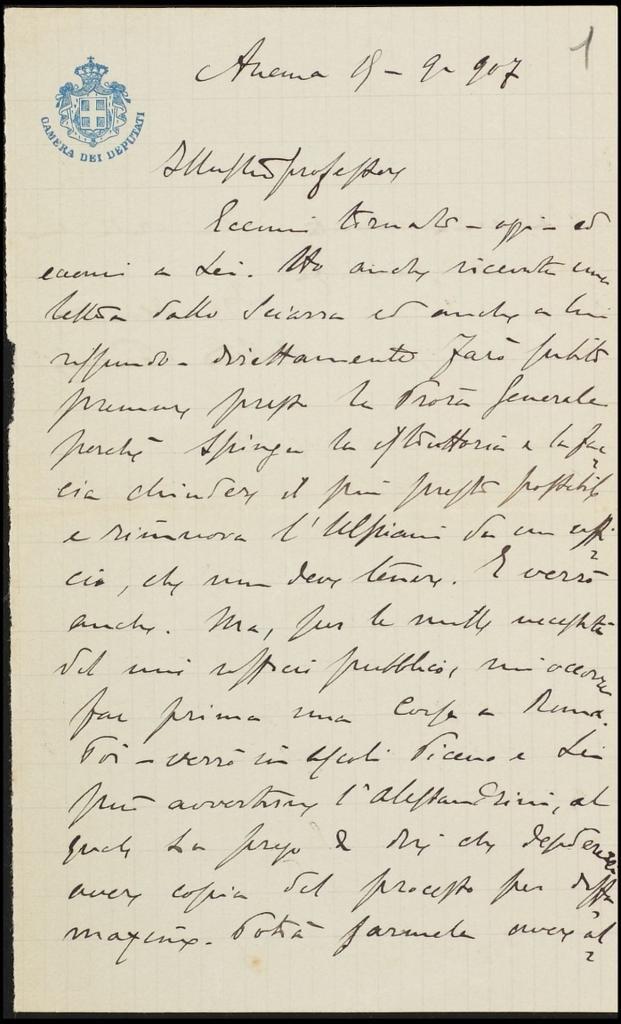 1
CAMERA DEI DEPUTATI
19 - 9 907
Illustre professore
Eccomi tornato - oggi - ed
eccomi a Lei. Ho anche ricevuto una
lettera dallo Sciarra ed anche a lui
rispondo - direttamente. Farò subito
premure presso la Procura Generale
perchè spinga la istruttoria e la fac-
cia chiudere il più presto possibile
e rimuova l'Ulpiani da un uffi-
cio, che non deve tenere. E verrò
anche. Ma, per le molte necessità
del mio ufficio pubblico, mi occorre
far prima una corsa a Roma.
Poi - verrò in Ascoli Piceno e Lei
può avvertirne l'Alessandrini, al
quale La prego di dire che desidererei
avere copia del processo per diffa-
mazione. Potrà farmela avere al-